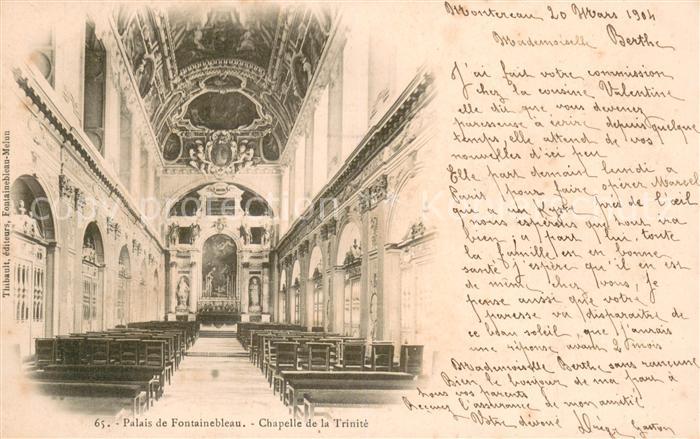 Montereau 20 Mars 1904
Mademoiselle Berthe
J'ai fait votre commission
chez la cousine Valentine
elle dit que vous devenez
paresseuse à écrire depuis quelque
temps, elle attend de vos
nouvelles d'ici peu
Elle part demain lundi a
Paris pour faire opérer Marcel
qui a un près de l'œil
nous espérons que tout ira
bien, a part lui, toute
la famille est en bonne
santé j'espère qu'il en est
de même chez vous, Je
pense aussi que votre
paresse va disparaître de
ce beau soleil, que j'aurais
une réponse avant 2 mois
Mademoiselle Berthe sans rancune
Bien le bonjour de ma part à
tous vos parents
Recevez l'assurance de mon amitié
Votre dévoué Gaston
Thibault, éditeurs, Fontainebleau-Melun
65. - Palais de Fontainebleau. - Chapelle de la Trinité